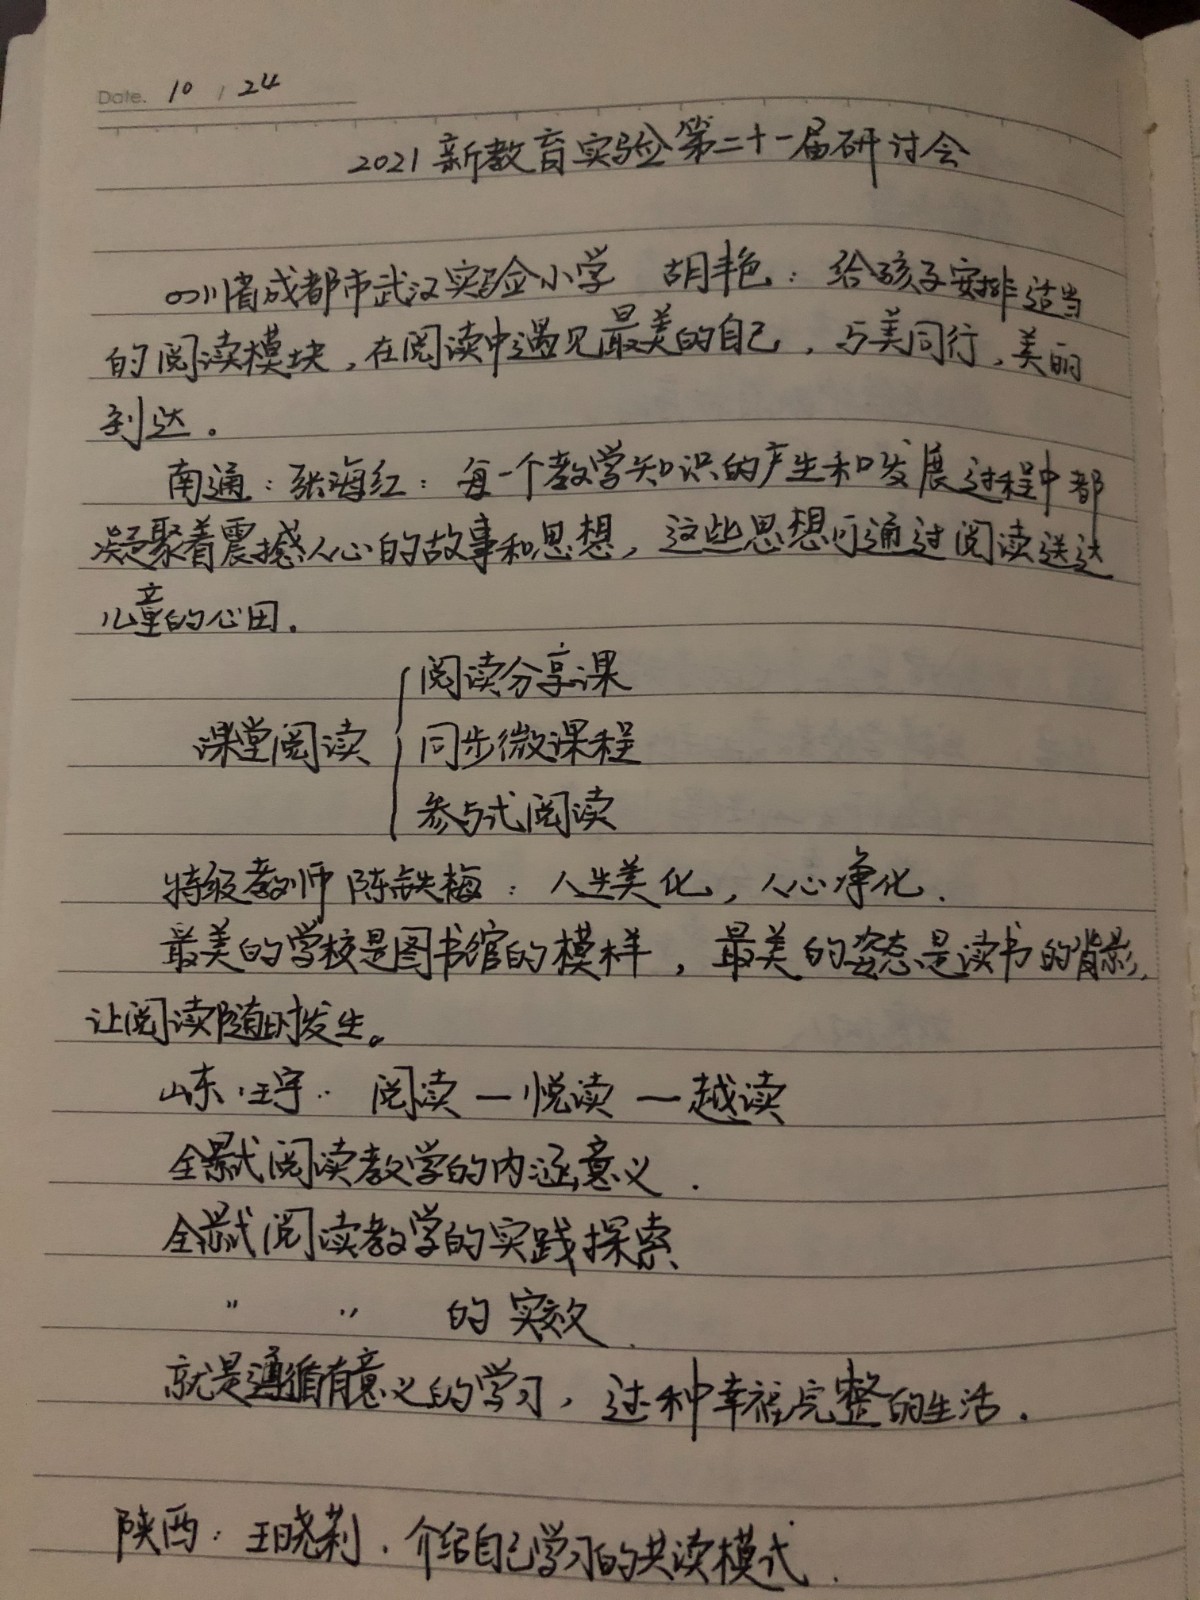 Date. 10 / 24
2021新教育实验第二十一届研讨会
四川省成都市武汉实验小学 胡艳：给孩子安排适当
的阅读模块，在阅读中遇见最美的自己，与美同行，美丽
到达。
南通：张海红：每一个教学知识的产生和发展过程中都
凝聚着震撼人心的故事和思想，这些思想可通过阅读送达
儿童的心田.
阅读分享课
课堂阅读 同步微课程
参与式阅读
特级教师 陈铁梅：人生美化，人心净化.
最美的学校是图书馆的模样，最美的姿态是读书的背影,
让阅读随时发生。
山东：王宇：阅读—悦读—越读
全景式阅读教学的内涵意义.
全景式阅读教学的实践探索
〃 〃 的实效.
就是遵循有意义的学习，过一种幸福完整的生活.
陕西：王晓莉.介绍自己学习的共读模式.